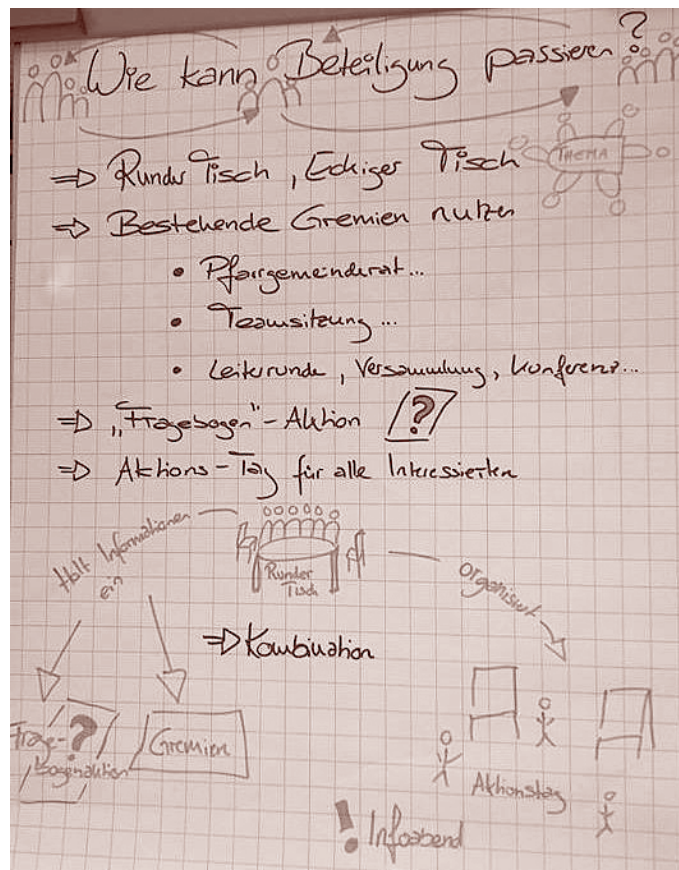 Wie kann Beteiligung passieren?
⇒ Runder Tisch, Eckiger Tisch
THEMA
⇒ Bestehende Gremien nutzen
• Pfarrgemeinderat...
• Teamsitzung...
• Leiterrunde, Versammlung, Konferenz...
⇒ „Fragebogen"-Aktion ?
⇒ Aktions-Tag für alle Interessierten
Holt Informationen
ein
Runder
Tisch
organisiert
⇒ Kombination
Frage-?
bogenaktion
Gremien
Aktionstag
! Infoabend